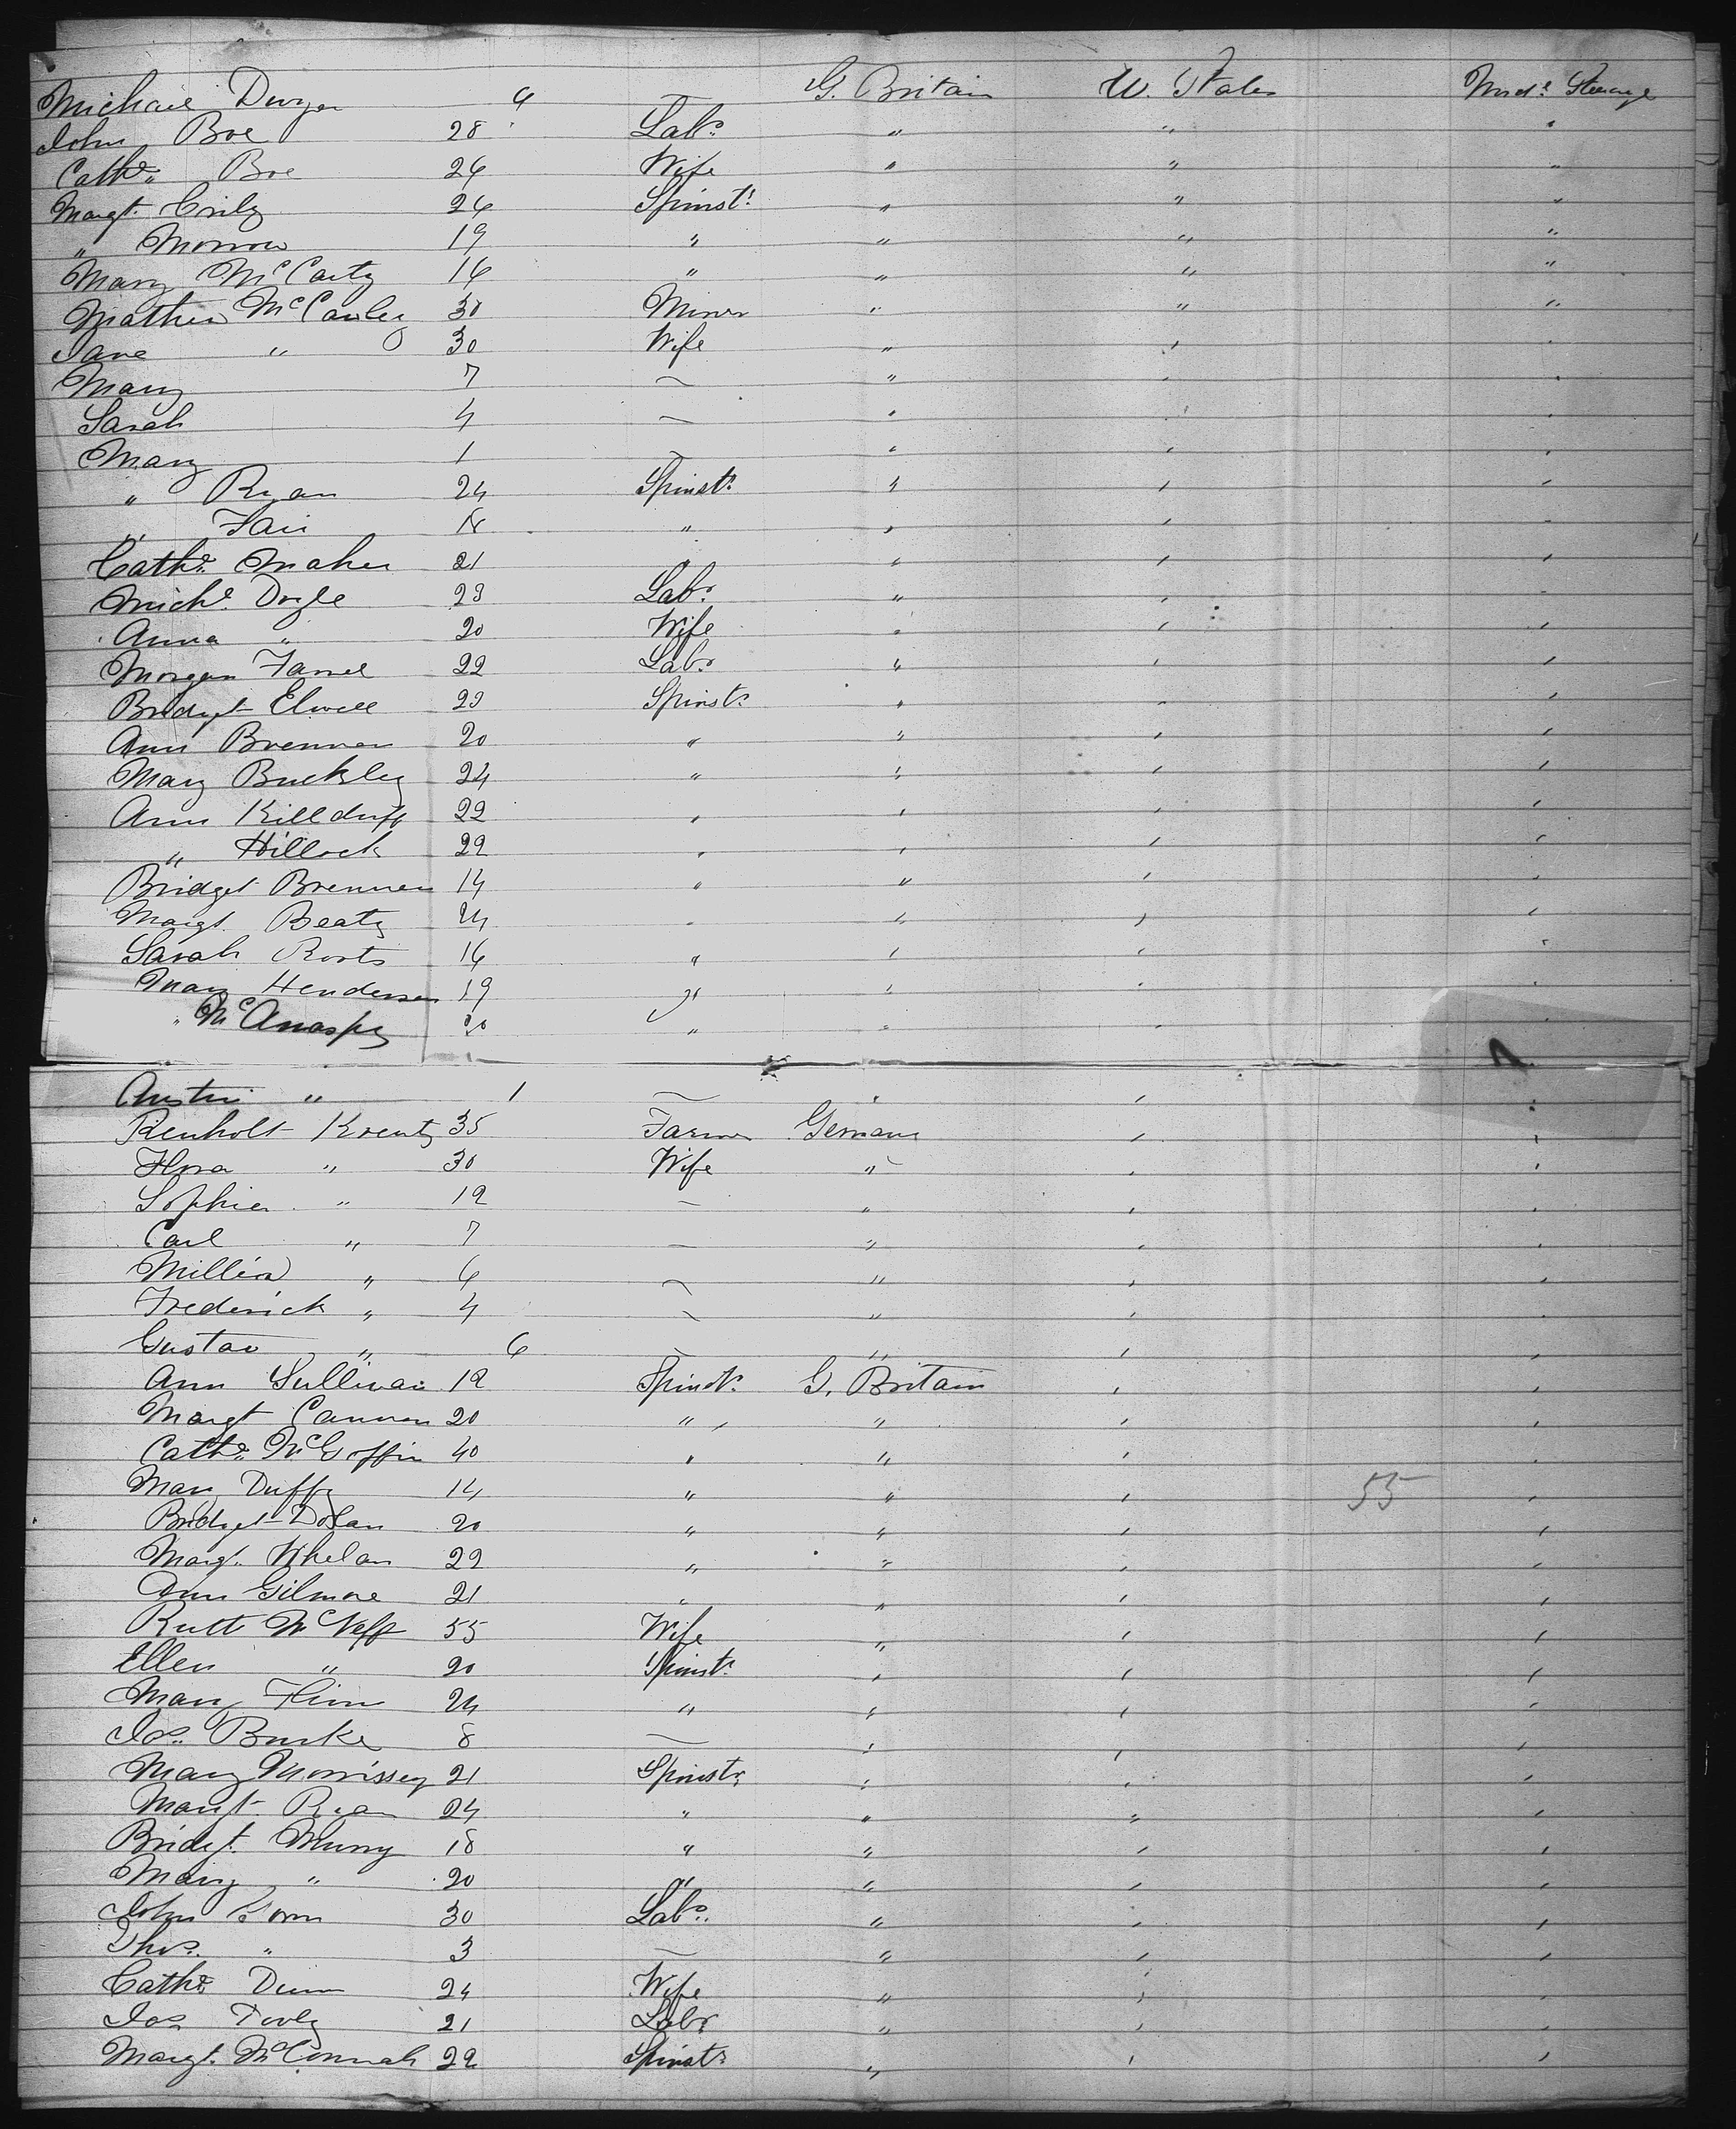 Michael Dwyer 9 — G. Britain U. States Mid. Steerage
John Boe 28 Labr. " " "
Cathe. Boe 26 Wife " " "
Margt. Crily 26 Spinstr. " " "
" Morrow 19 " " " "
Mary McCarty 16 " " " "
Mathew McCawley 30 Miner " " "
Jane " 30 Wife " " "
Mary 7 — " " "
Sarah 4 — " " "
Mary 1 — " " "
" Ryan 24 Spinstr. " " "
" Fair 18 " " " "
Cathe. Maher 21 " " " "
Michl. Doyle 23 Labr. " " "
Anna " 20 Wife " " "
Morgan Farrel 22 Labr. " " "
Bridget Elwell 23 Spinstr. " " "
Ann Brennan 20 " " " "
Mary Buckley 24 " " " "
Ann Killduff 22 " " " "
" Hillock 22 " " " "
Bridget Brennen 14 " " " "
Margt. Beaty 24 " " " "
Sarah Roots 16 " " " "
Mary Henderson 19 " " " "
" McAnaspy 20 " " " "
Austin " 1 — " " "
Renholt Krentz 35 Farmer Germany " "
Flora " 30 Wife " " "
Sophia " 12 — " " "
Carl " 7 — " " "
Millia " 6 — " " "
Frederick " 4 — " " "
Gustav " 6 — " " "
Ann Sullivan 12 Spinstr. G. Britain " "
Margt Cannon 20 " " " "
Cathe. McGoffin 40 " " " "
Mary Duffy 14 " " " 55 "
Bridget Dolan 20 " " " "
Margt. Whelan 22 " " " "
Ann Gilmore 21 " " " "
Ruth McNeff 55 Wife " " "
Ellen " 20 Spinstr. " " "
Mary Flinn 24 " " " "
Jos. Burke 8 — " " "
Mary Morrissey 21 Spinstr. " " "
Margt. Ryan 24 " " " "
Bridgt. Murry 18 " " " "
Mary " 20 " " " "
John 30 Labr. " " "
Thos. " 3 — " " "
Cathe. Dunn 24 Wife " " "
Jos. Tooly 21 Labr. " " "
Margt. McConnah 22 Spinstr. " " "